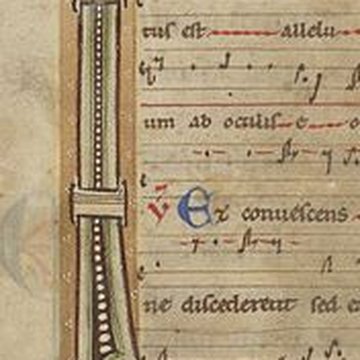 tus est allelu
um ab oculis e o
V Ex conuescens
ne discederent sed